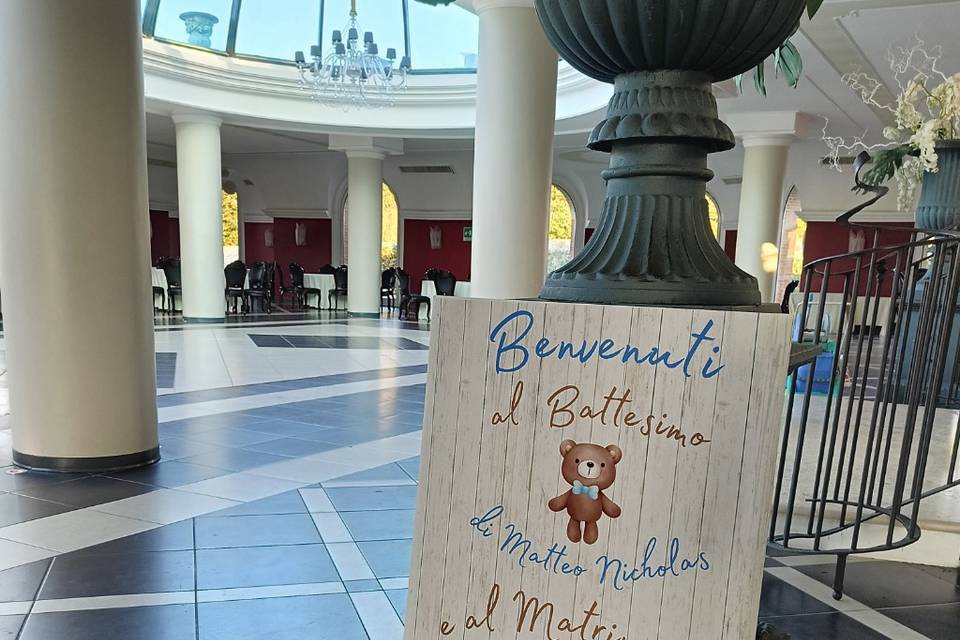 Benvenuti
al Battesimo
di Matteo Nicholas
e al Matri